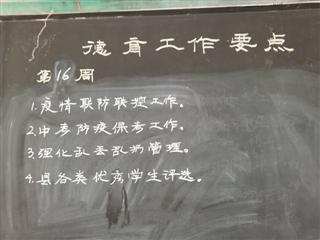 德育工作要点
第16周
1.疫情联防联控工作。
2.中考防疫保考工作。
3.强化乱丢乱扔管理。
4.县各类优秀学生评选。